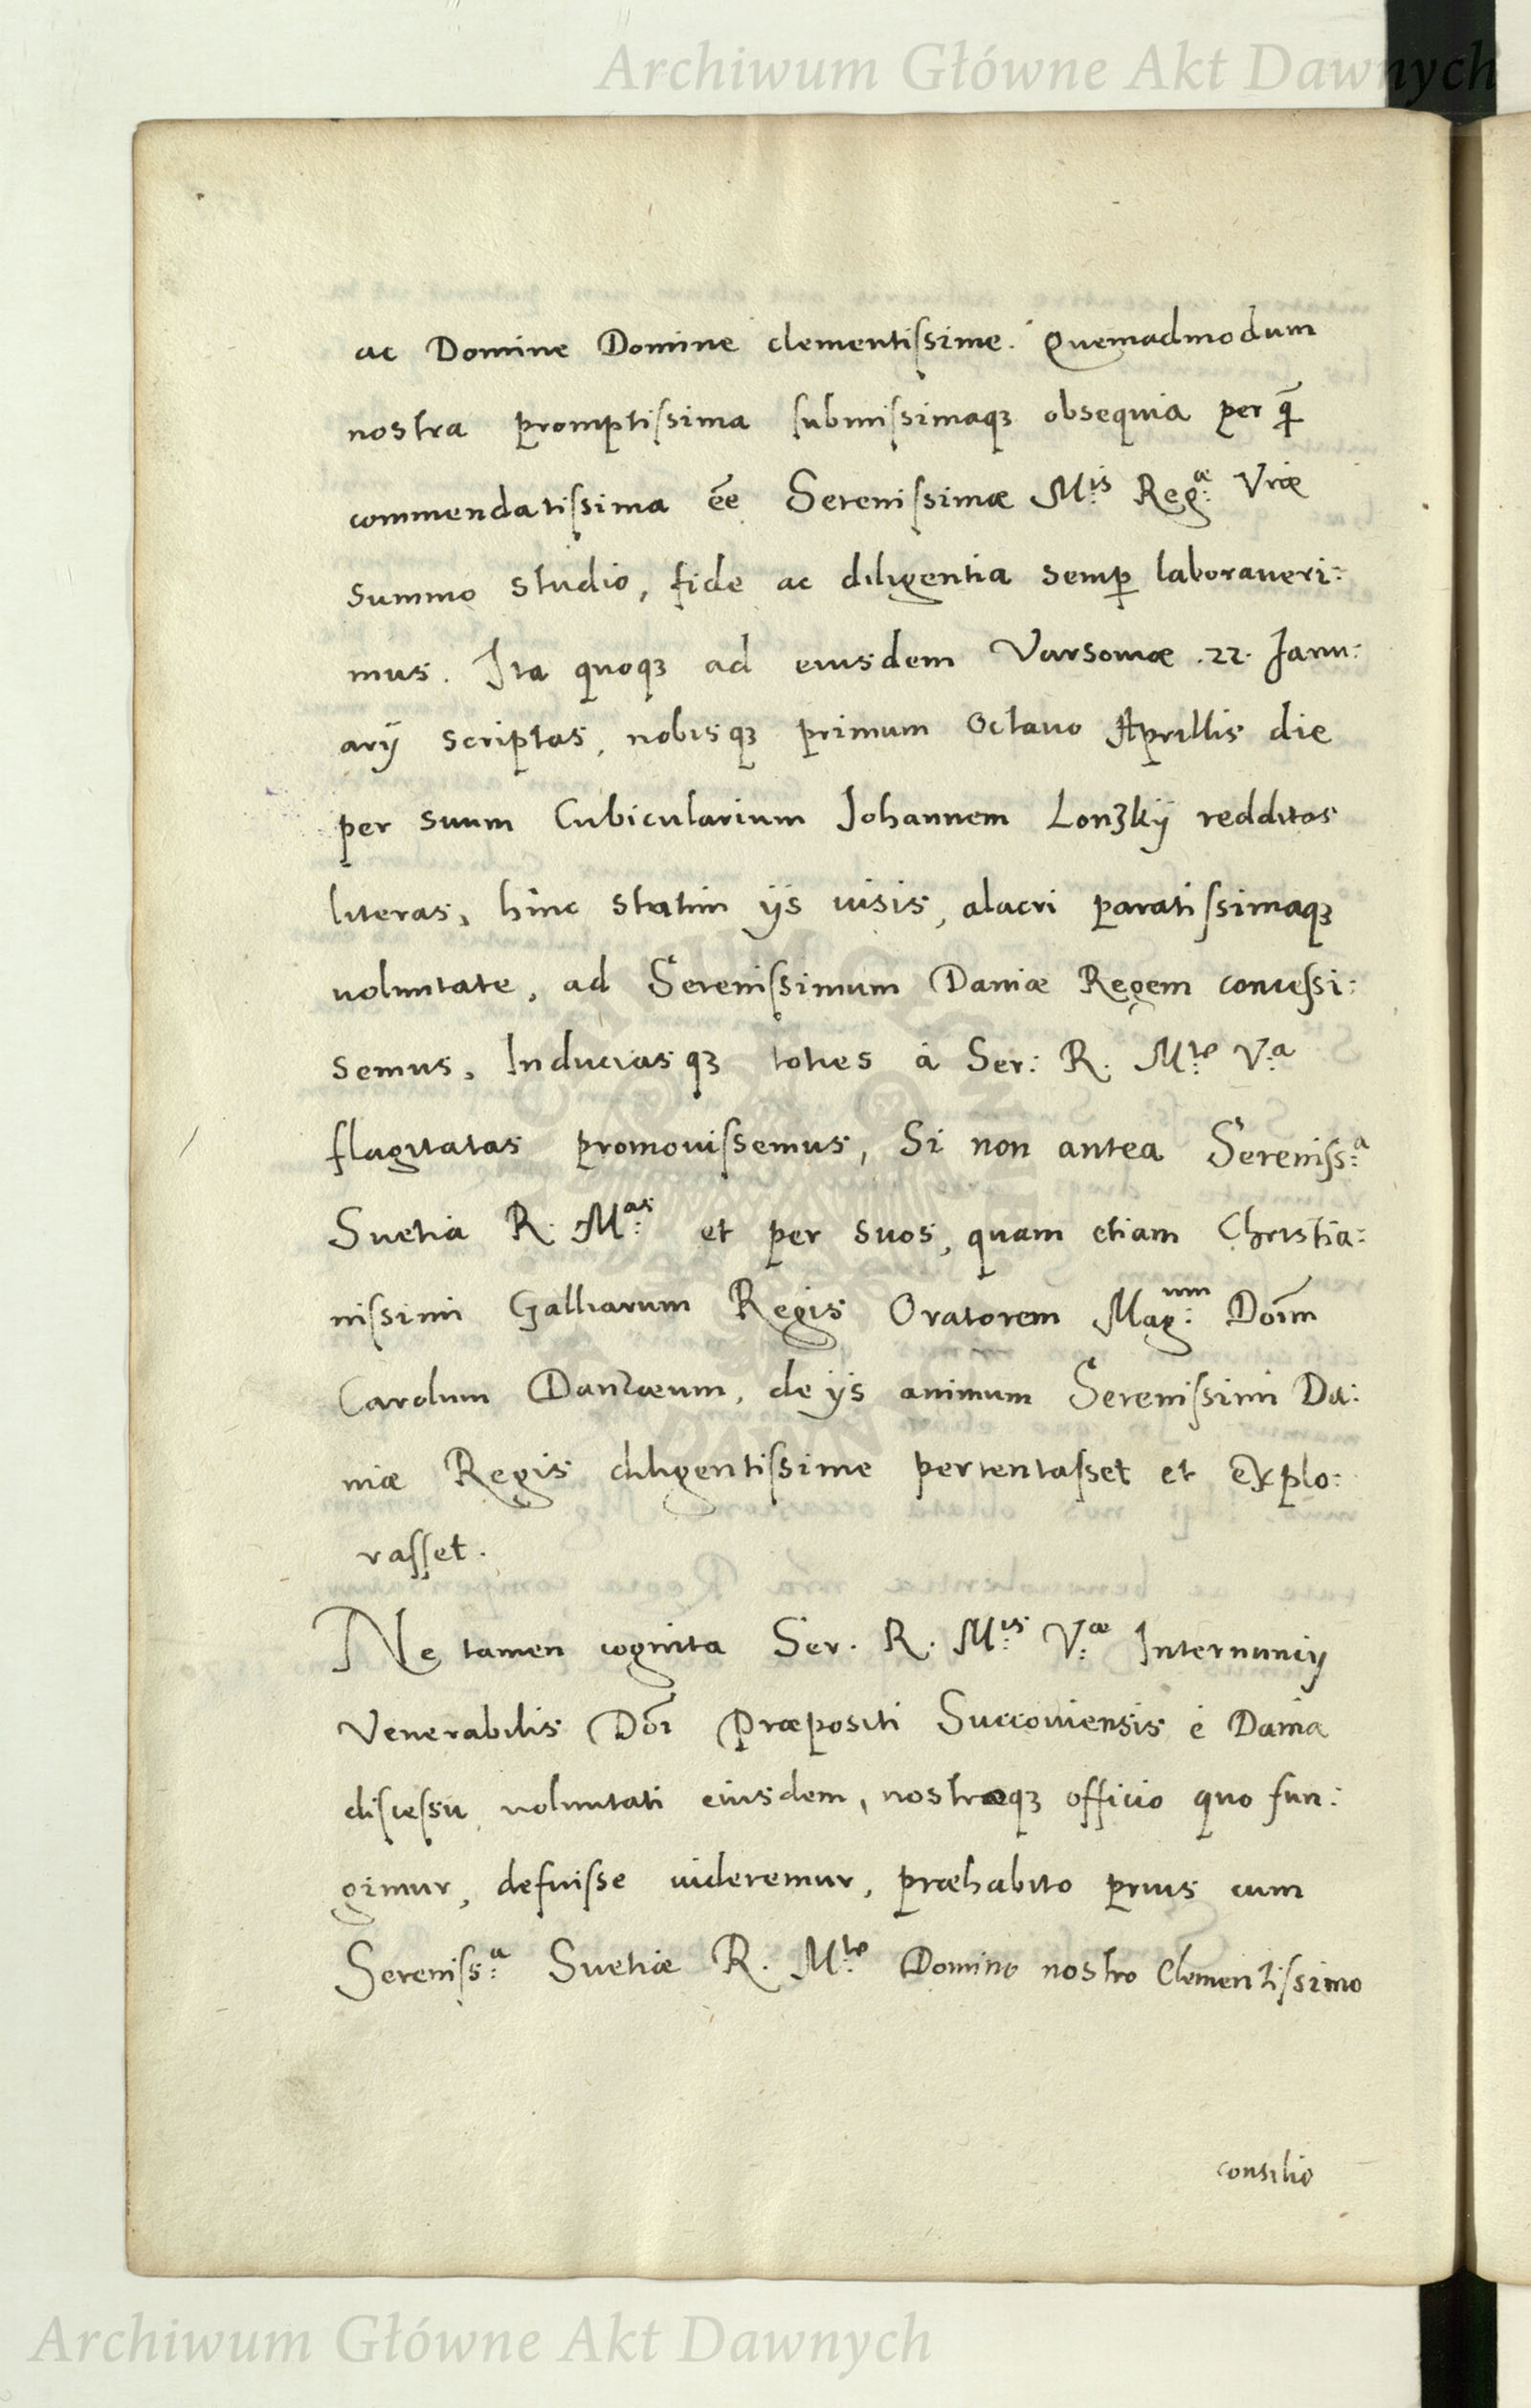 Archiwum Główne Akt Dawnych
ac Domine Domine clementiſsime. Quemadmodum
nostra promptiſsima ſubmiſsimaqꝫ obsequia per q̄
commendatiſsima ēē Sereniſsimæ M:is Reg:æ Vræ
summo studio, fide ac diligentia semꝑ laboraueri:
mus. Ita quoqꝫ ad eiusdem Varsouiæ .22. Janu:
arij scriptas, nobisqꝫ primum Octauo Aprillis die
per suum Cubicularium Johannem Lonʒkij redditas
literas, hinc statim ijs uisis, alacri paratiſsimaqꝫ
uoluntate, ad Sereniſsimum Daniæ Regem conceſsi:
semus, Induciasqꝫ toties à Ser: R. M:te V:a
flagitatas promouiſsemus, Si non antea Sereniſs:a
Suetia R. M:as et per suos, quam etiam Christia:
niſsimi Galliarum Regis Oratorem Mag:um Doīm
Carolum Danzæum, de ijs animum Sereniſsimi Da:
niæ Regis diligentiſsime pertentaſset et explo:
raſſet.
Ne tamen cognita Ser. R. M:is V:æ Internuncij
Venerabilis Doī Præpositi Succouiensis è Dania
diſceſsu uoluntati eiusdem, nostræqꝫ officio quo fun:
gimur, defuiſse uideremur, præhabito prius cum
Sereniſs:a Suetiæ R. M:te Domino nostro Clementiſsimo
consilio
Archiwum Główne Akt Dawnych